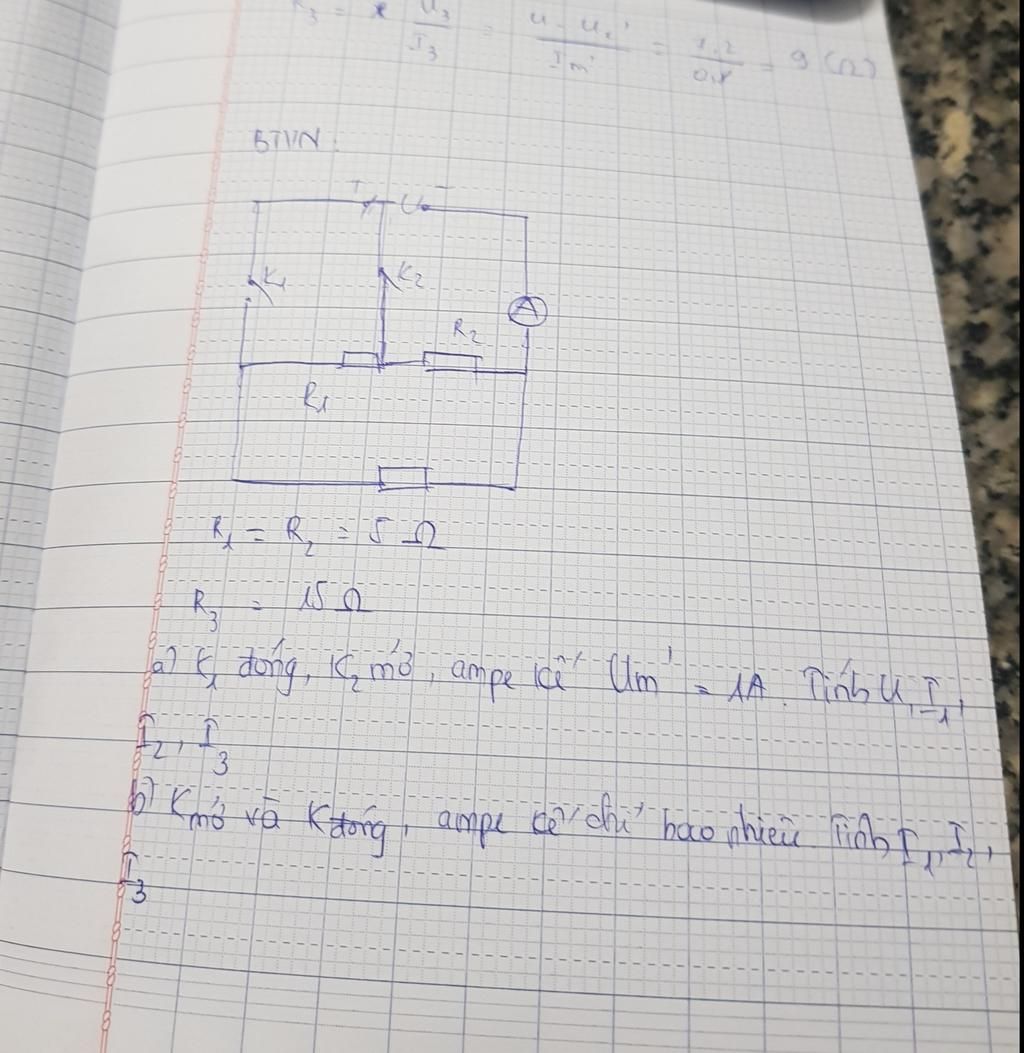 R3 = U3/I3 = U - U2'/Im' = 7.2/0.8 = 9 (Ω)
BTVN :
+ U -
K1 K2
A
R2
R1
R1 = R2 = 5 Ω
R3 = 15 Ω
a) K1 đóng, K2 mở, ampe kế Um' = 1A. Tính U, I1,
I2, I3
b) K mở và K đóng, ampe kế chỉ bao nhiêu Tính I1, I2,
I3